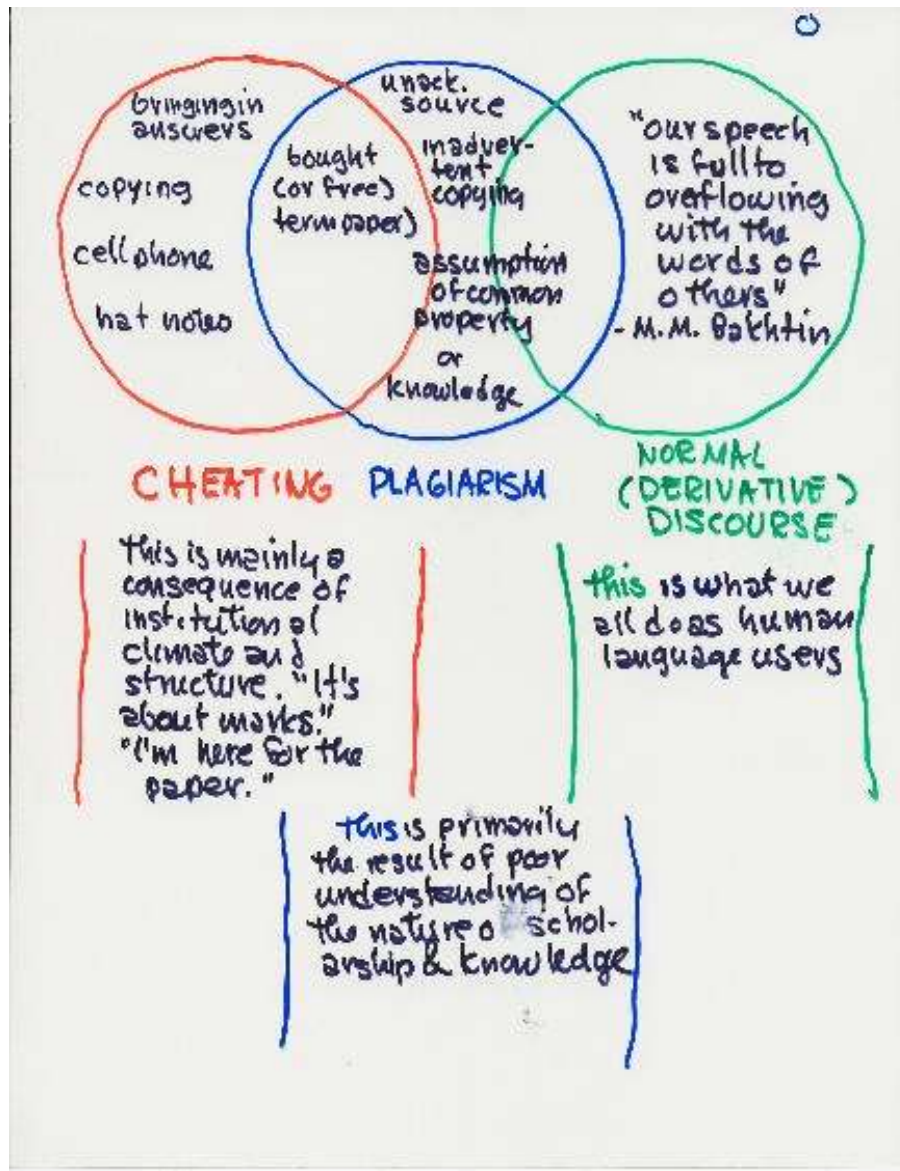 bringing in
answers
copying
cell phone
hat notes
bought
(or free)
term paper)
unack.
source
inadver-
tent
copying
assumption
of common
property
or
knowledge
"our speech
is full to
overflowing
with the
words of
others"
- M.M. Bakhtin
CHEATING
PLAGIARISM
NORMAL
(DERIVATIVE)
DISCOURSE
This is mainly a
consequence of
institutional
climate and
structure. "It's
about marks."
"I'm here for the
paper."
this is what we
all do as human
language users
this is primarily
the result of poor
understanding of
the nature o schol-
arship & knowledge